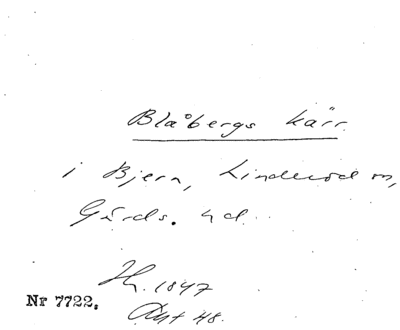 Blåbergs kärr.
i Bjern, Linderöd sn,
Gärds. hd.
Hr. 1847
Akt 48.
Nr 7722.